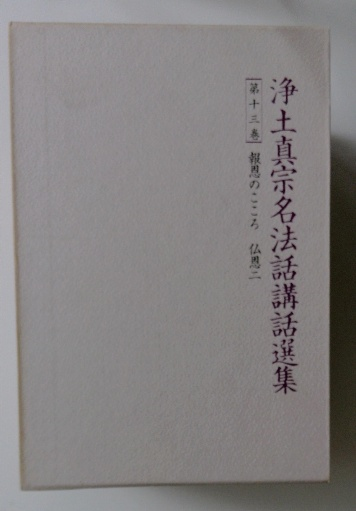 浄土真宗名法話講話選集
第十三巻 報恩のこころ 仏恩二